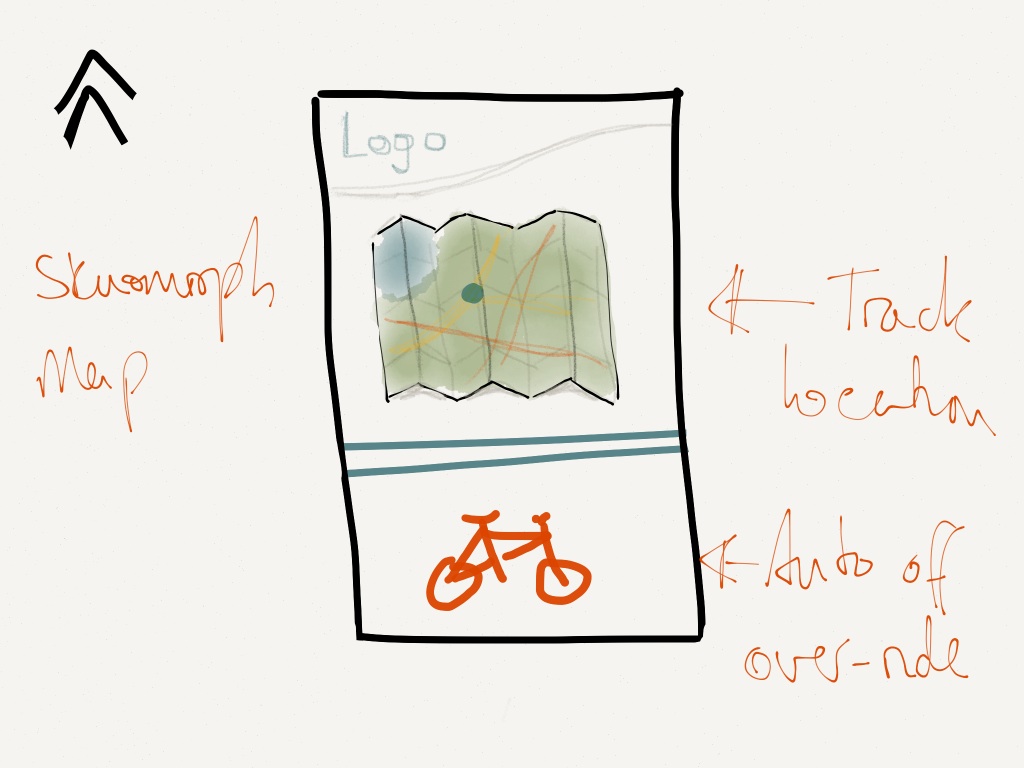 Logo
Skuomorph
Map
Track
location
Auto off
over-ride